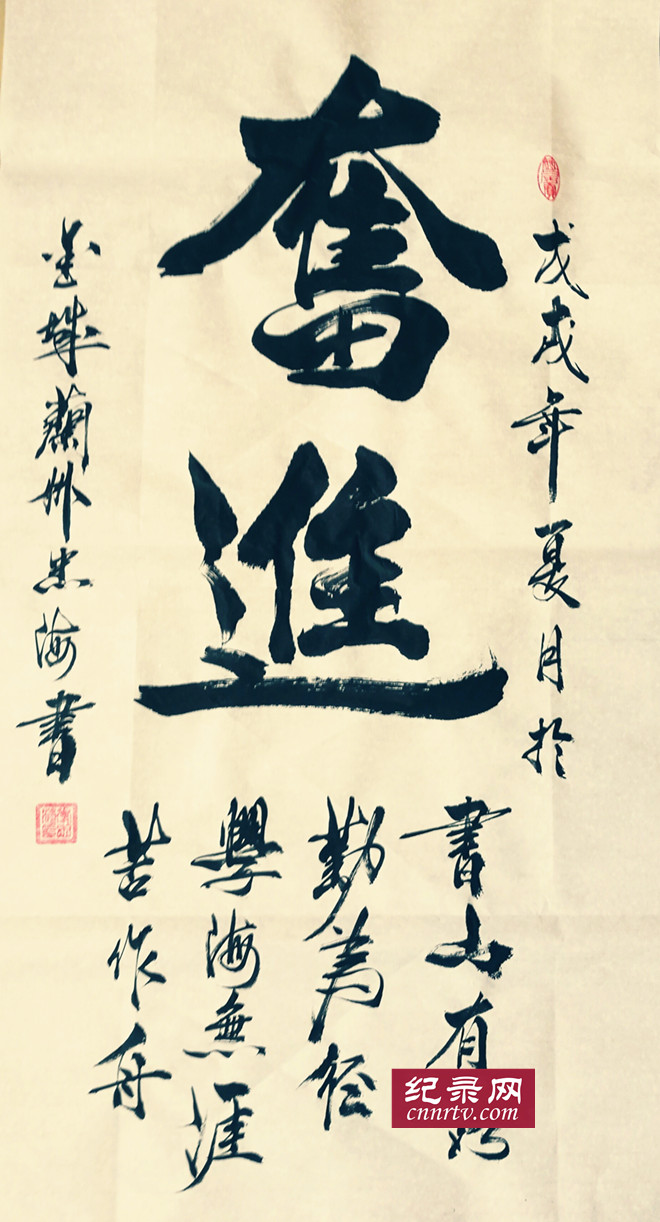 戊戌年夏月於
奮進
書山有
勤為径
學海無涯
苦作舟
金城蘭州忠海書
纪录网
cnnrtv.com